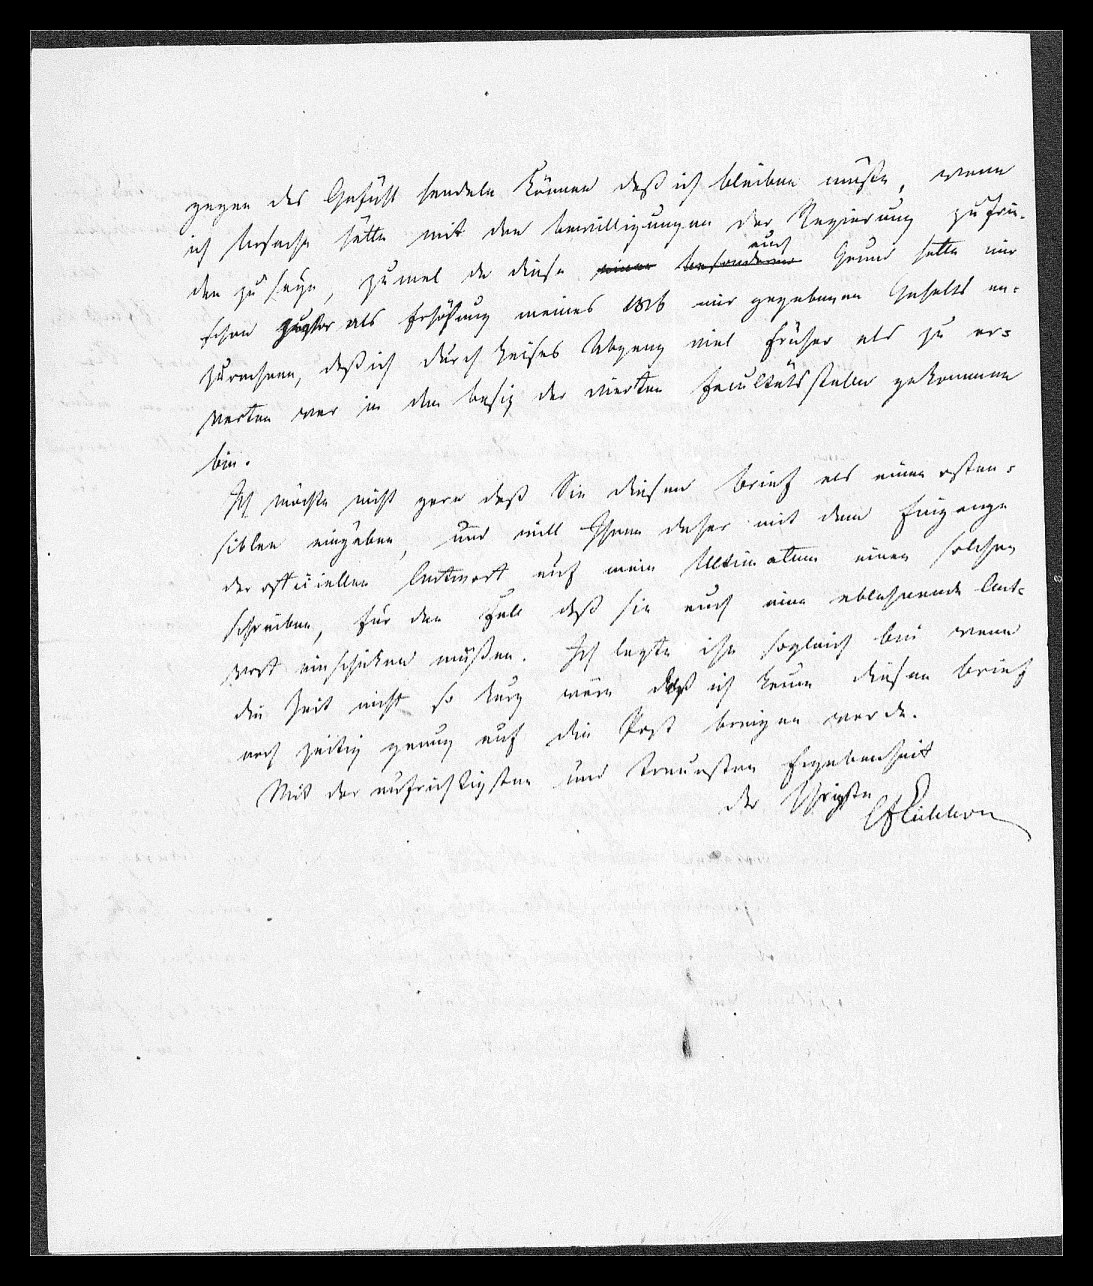 gegen das Gefühl handeln können daß ich bleiben müßte, wenn
ich Ursache hätte mit den bewilligungen der Regierung zufrie-
den zu seyn, zumal da diese einen besonderen auch Grund hatte mir
schon als Erhöhung meines 1816 mir gegebenen Gehalts an-
zurechnen, daß ich durch Abgang viel früher als zu er-
warten war in den besiz der vierten Facultätsstelle gekommen
bin.
Ich möchte nicht gern daß Sie diesen brief als einen osten-
siblen eingäben, und will Ihnen daher mit dem Eingange
der officiellen Antwort auf mein Ultimatum einen solchen
schreiben, für den Fall daß sie auch eine ablehnende Ant-
wort einschicken müßten. Ich legte ihn sogleich bei wenn
die Zeit nicht so kurz wäre daß ich kaum diesen brief
noch zeitig genug auf die Post bringen werde.
Mit der aufrichtigsten und treuesten Ergebenheit
der Ihrigste